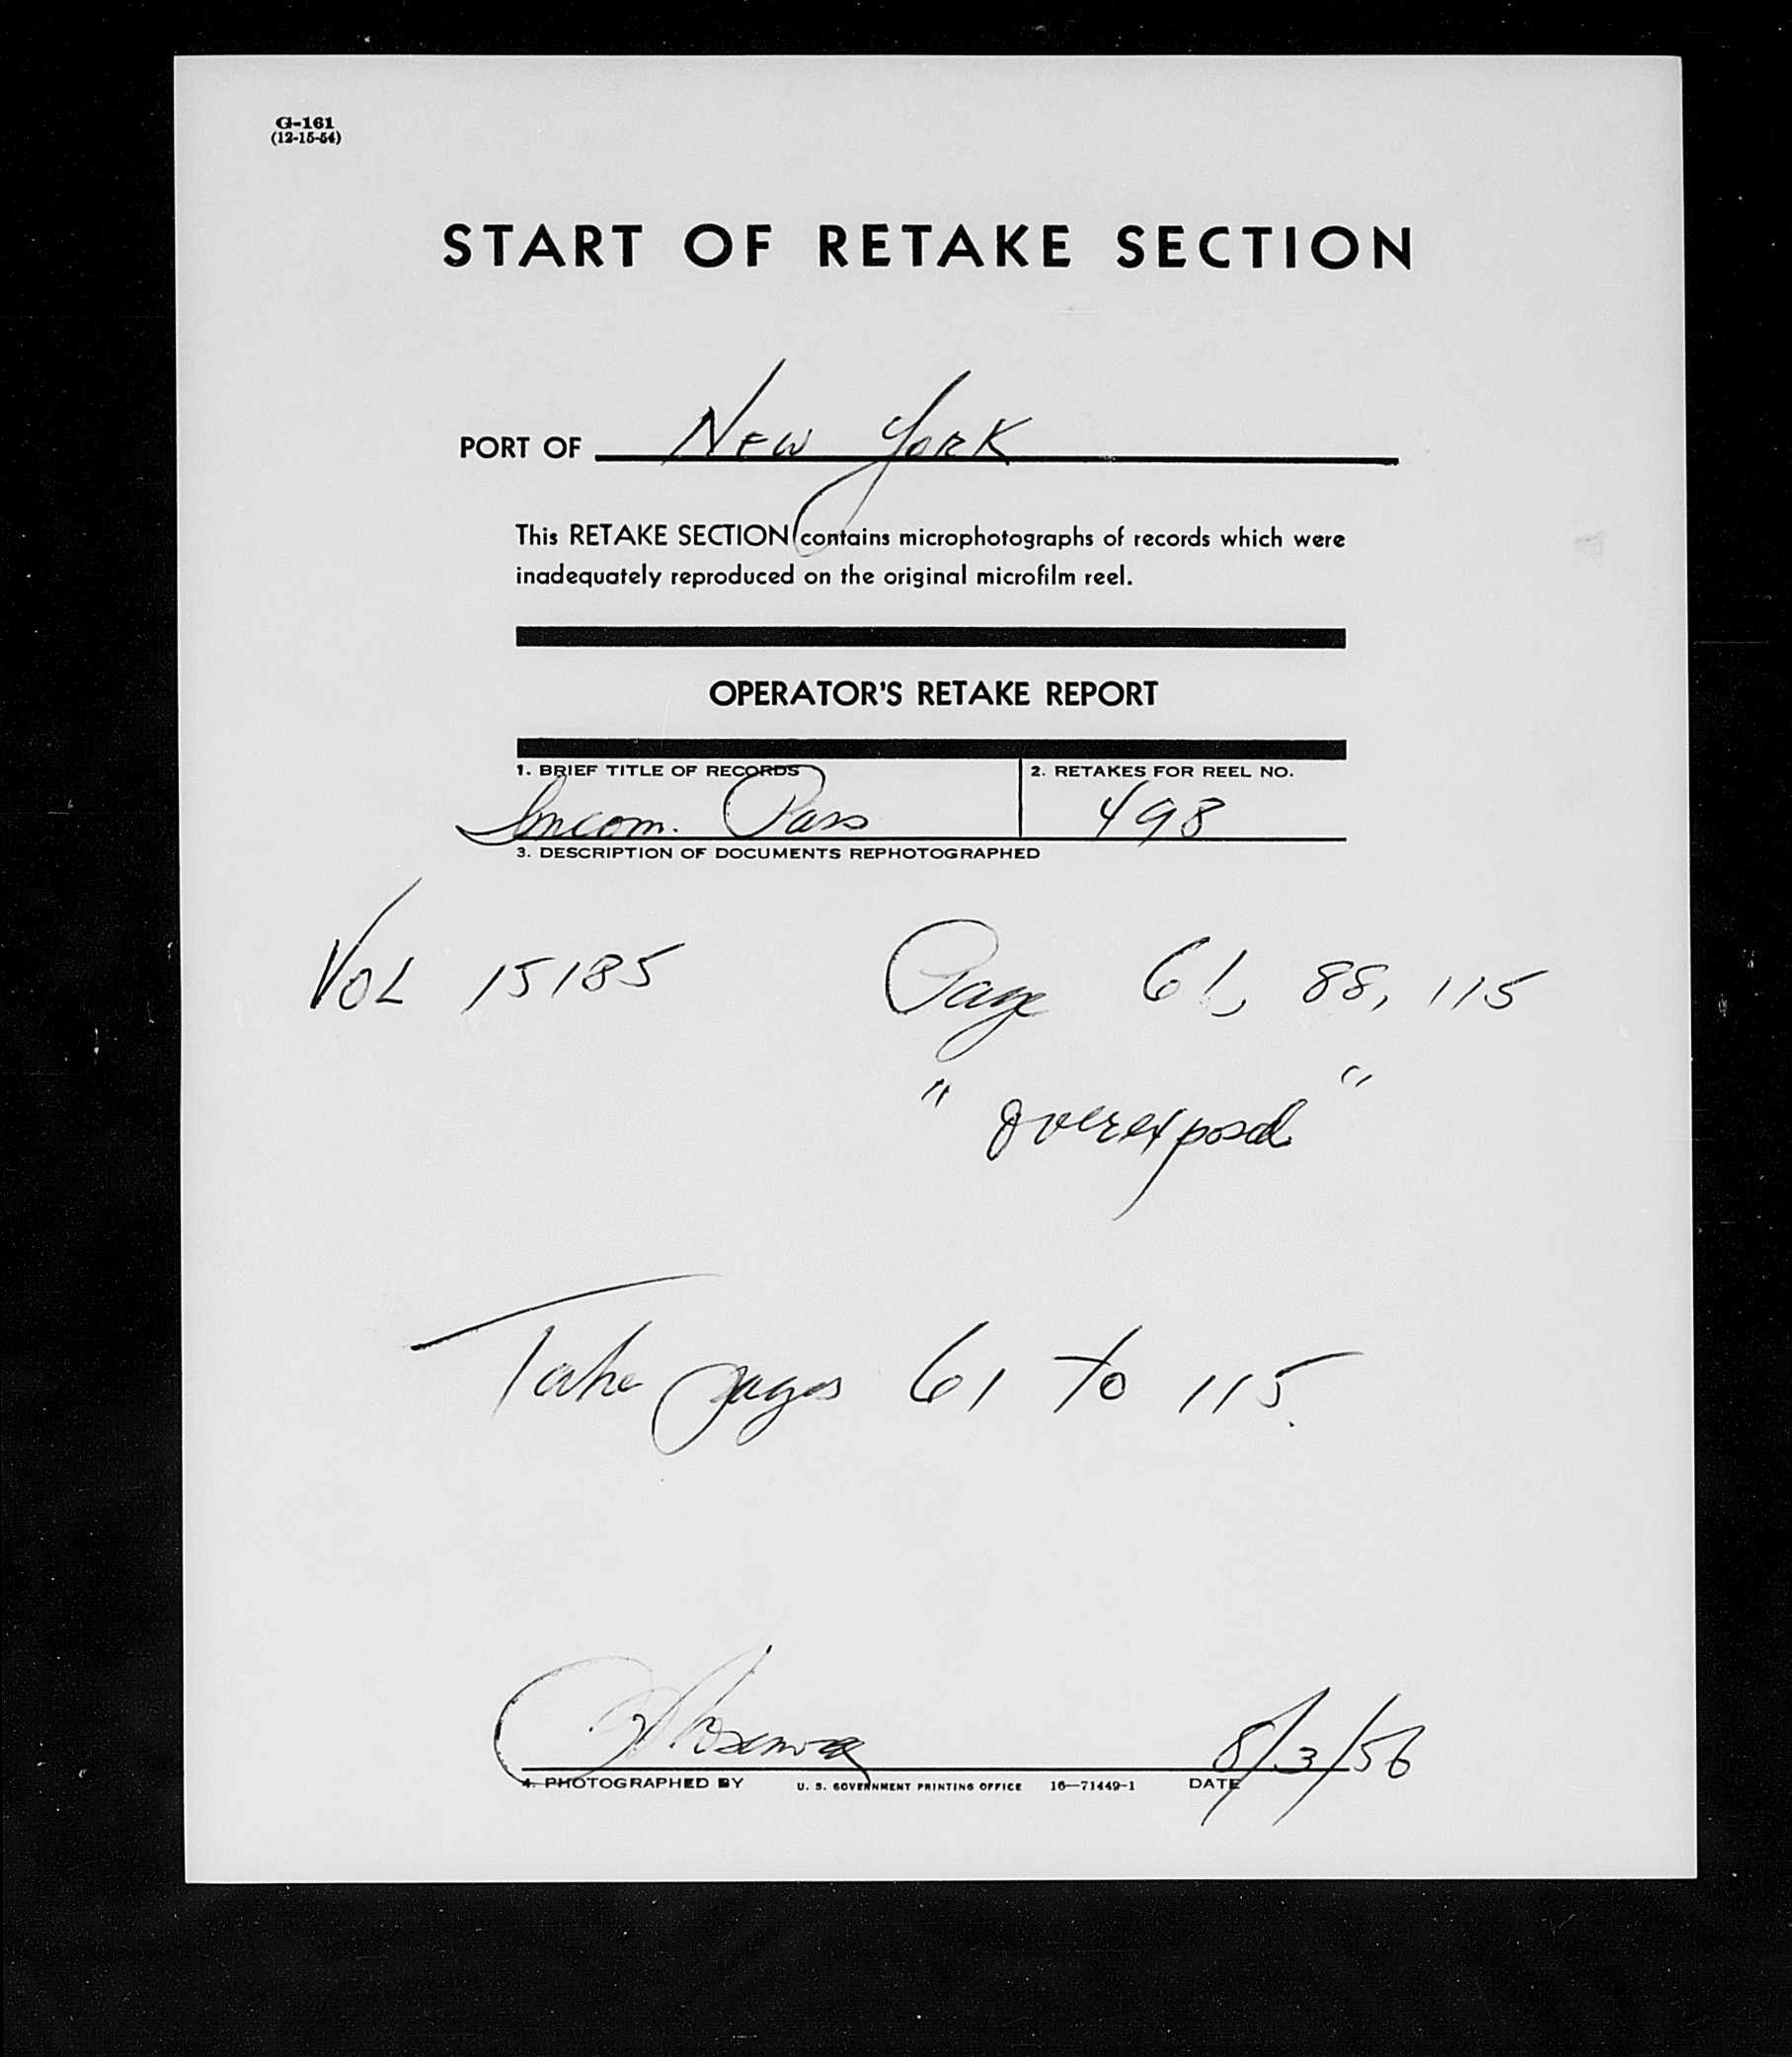 G-161
(12-15-54)
START OF RETAKE SECTION
PORT OF New York
This RETAKE SECTION contains microphotographs of records which were
inadequately reproduced on the original microfilm reel.
OPERATOR'S RETAKE REPORT
1. BRIEF TITLE OF RECORDS 2. RETAKES FOR REEL NO.
Incom. Pass 498
3. DESCRIPTION OF DOCUMENTS REPHOTOGRAPHED
VOL 15185 Page 61, 88, 115
" overexposed "
Take pages 61 to 115.
8/3/56
4. PHOTOGRAPHED BY U. S. GOVERNMENT PRINTING OFFICE 16—71449-1 DATE